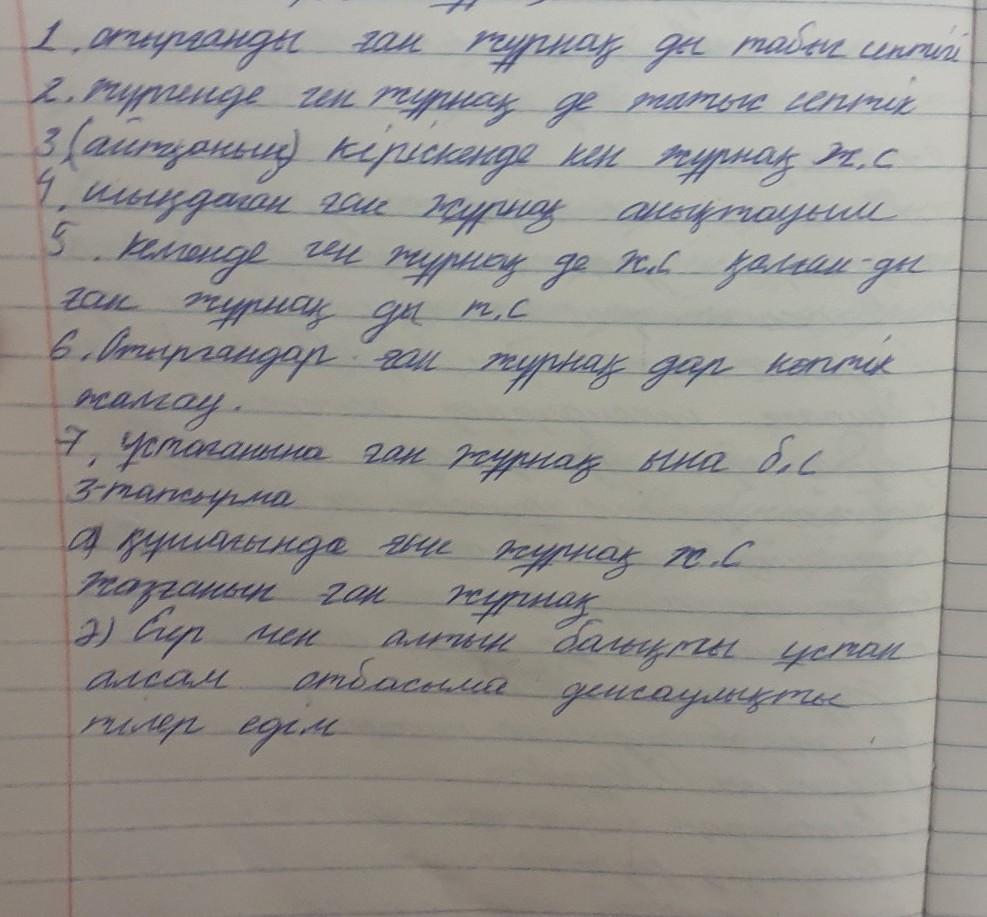 1. отырғанды ған жұрнақ ды табыс септігі
2. жүргенде ген жұрнақ де жатыс септік
3 (айтқанын) кіріскенде кен жұрнақ Ж.С
4. шыңдаған ған жұрнақ анықтауыш
5. келгенде ген жұрнақ де Ж.С қалған-ды
ған жұрнақ ды т.С
6. Отырғандар ған жұрнақ дар көптік
жалғау.
7. ұстағанына ған жұрнақ ына б.С
3-тапсырма
а) құшағында ғын жұрнақ ж.С
жазғанын ған жұрнақ
ә) Егер мен алтын балықты ұстап
алсам отбасыма денсаулықты
тілер едім